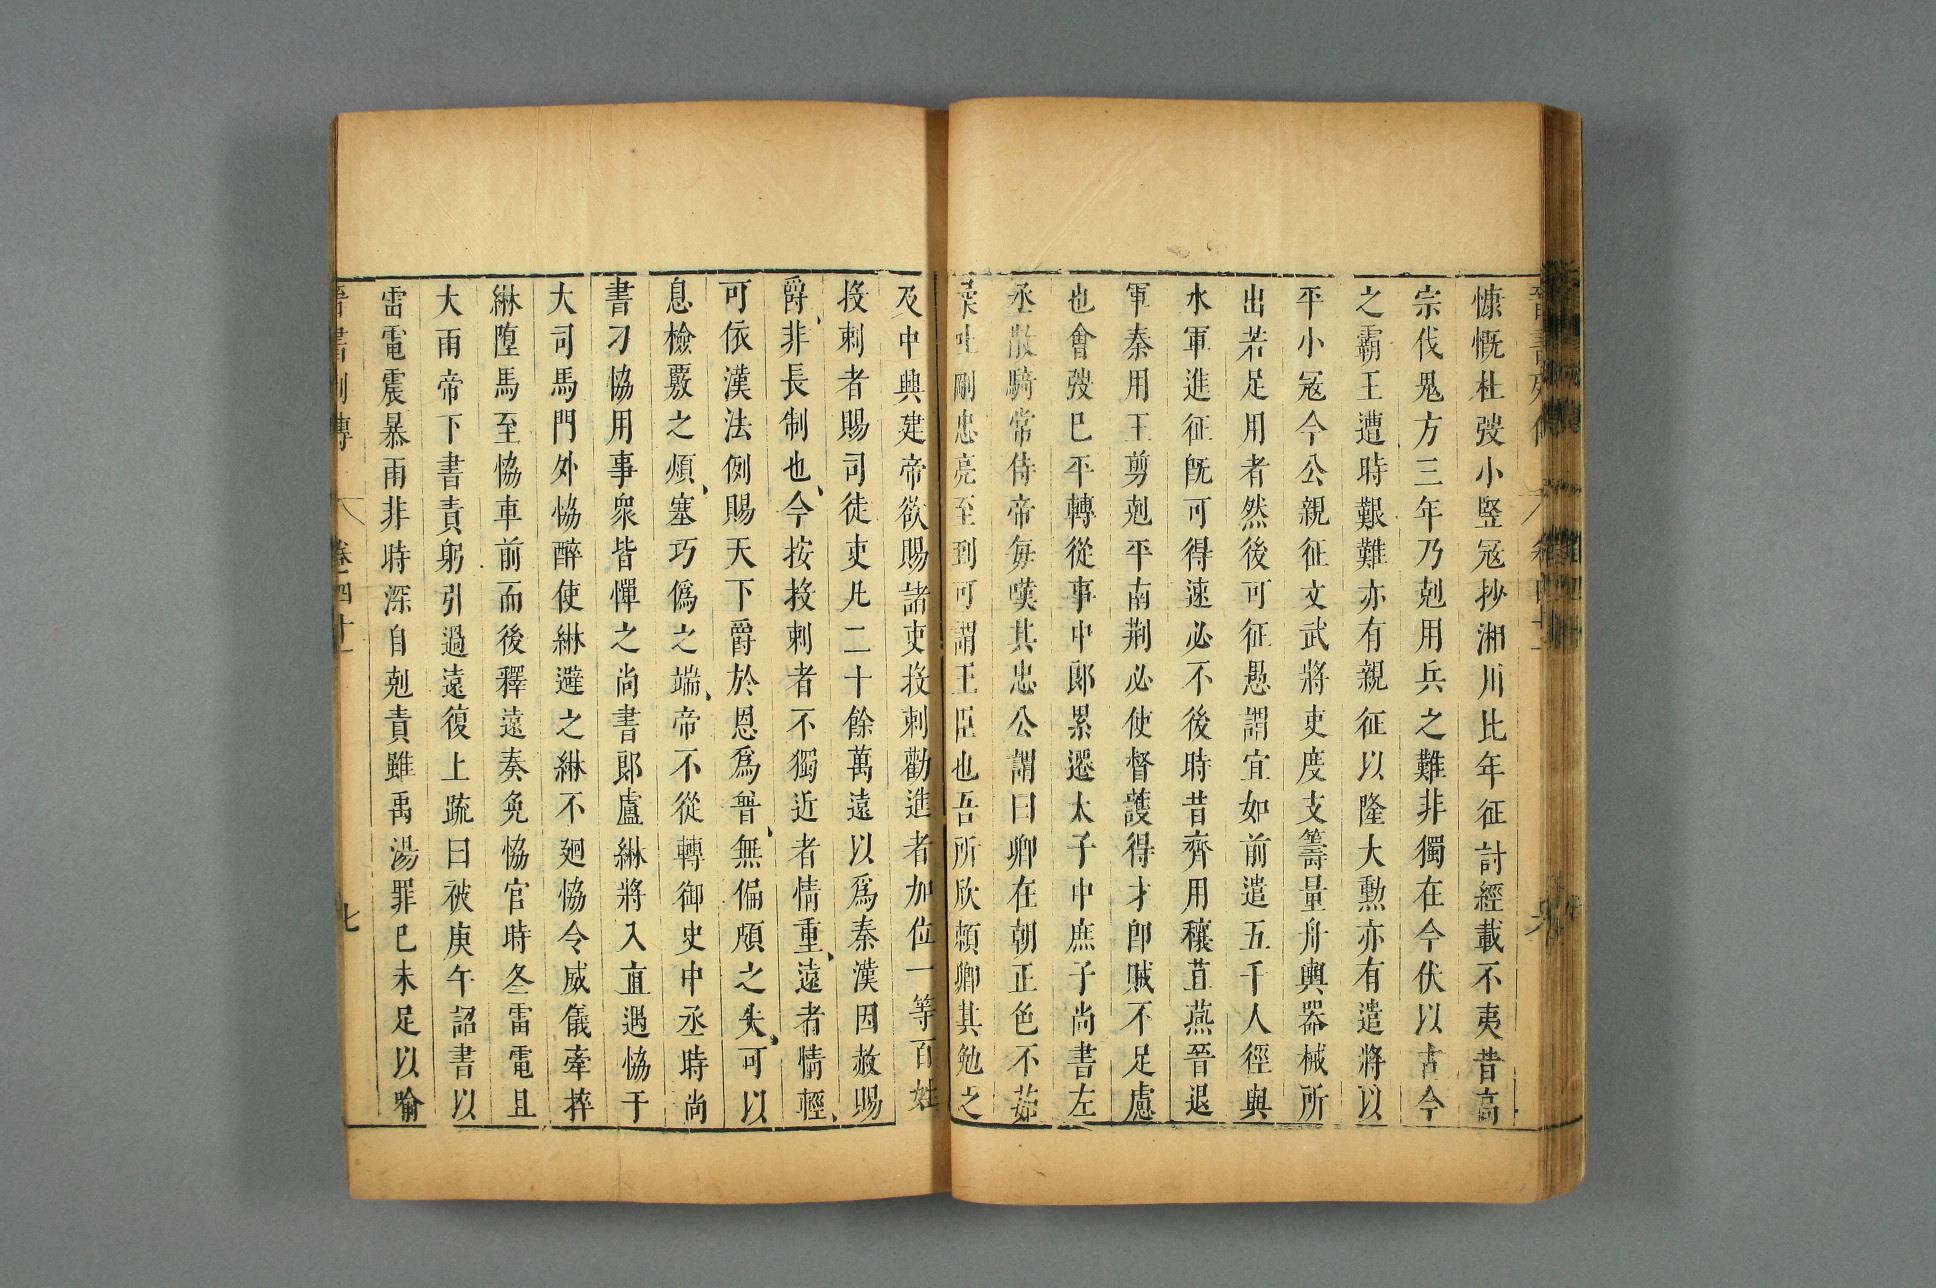 慷慨杜弢小豎冦抄湘川比年征討經載不夷昔高
宗伐鬼方三年乃剋用兵之難非獨在今伏以古今
之霸王遭時艱難亦有親征以隆大勲亦有遣將以
平小冦今公親征文武將吏度支籌量舟輿器械所
出若足用者然後可征愚謂宜如前遣五千人徑與
水軍進征旣可得速必不後時昔齊用穰苴燕晉退
軍秦用王剪剋平南荆必使督護得才卽賊不足慮
也會弢巳平轉從事中郎累遷太子中庶子尚書左
丞散騎常侍帝毎嘆其忠公謂曰卿在朝正色不茹
柔吐剛忠亮至到可謂王臣也吾所欣頼卿其勉之
及中興建帝欲賜諸吏投刺勸進者加位一等百姓
投刺者賜司徒吏凡二十餘萬遠以爲秦漢因赦賜
爵非長制也今按投刺者不獨近者情重遠者情輕
可依漢法例賜天下爵於恩爲普無偏頗之失可以
息檢覈之煩塞巧僞之端帝不從轉御史中丞時尚
書刁協用事衆皆憚之尚書郎盧綝將入直遇協于
大司馬門外協醉使綝避之綝不廻協令威儀牽捽
綝墮馬至協車前而後釋遠奏免協官時冬雷電且
大雨帝下書責躬引過遠復上疏曰被庚午詔書以
雷電震暴雨非時深自剋責雖禹湯罪巳未足以喻
晉書列傳 卷四十一 七